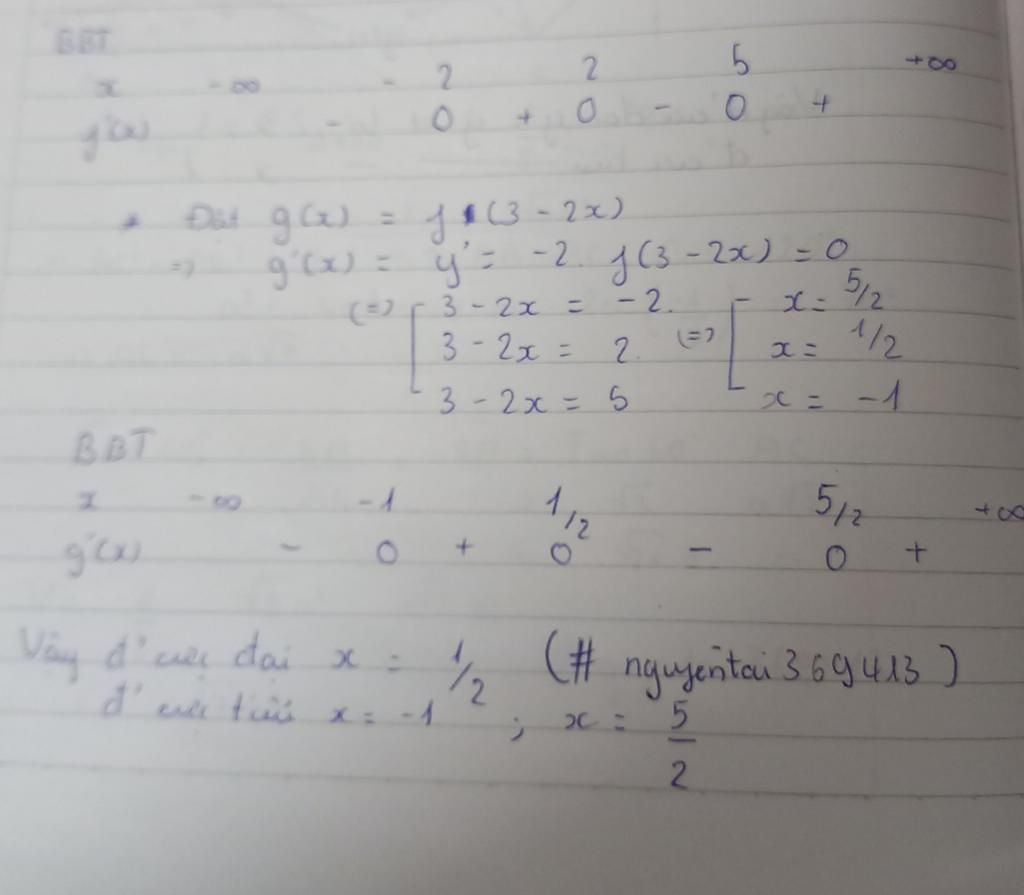 BBT
x -∞ -2 2 5 +∞
f'(x) - 0 + 0 - 0 +
* Đặt g(x) = f(3 - 2x)
=> g'(x) = y' = -2. f(3 - 2x) = 0
(=) [ 3 - 2x = -2. [ x = 5/2
3 - 2x = 2. (=) x = 1/2
3 - 2x = 5 x = -1
BBT
x -∞ -1 1/2 5/2 +∞
g'(x) - 0 + 0 - 0 +
Vậy đ' cực đại x = 1/2 (# nguyentai369413)
đ' cực tiểu x = -1 ; x = 5/2